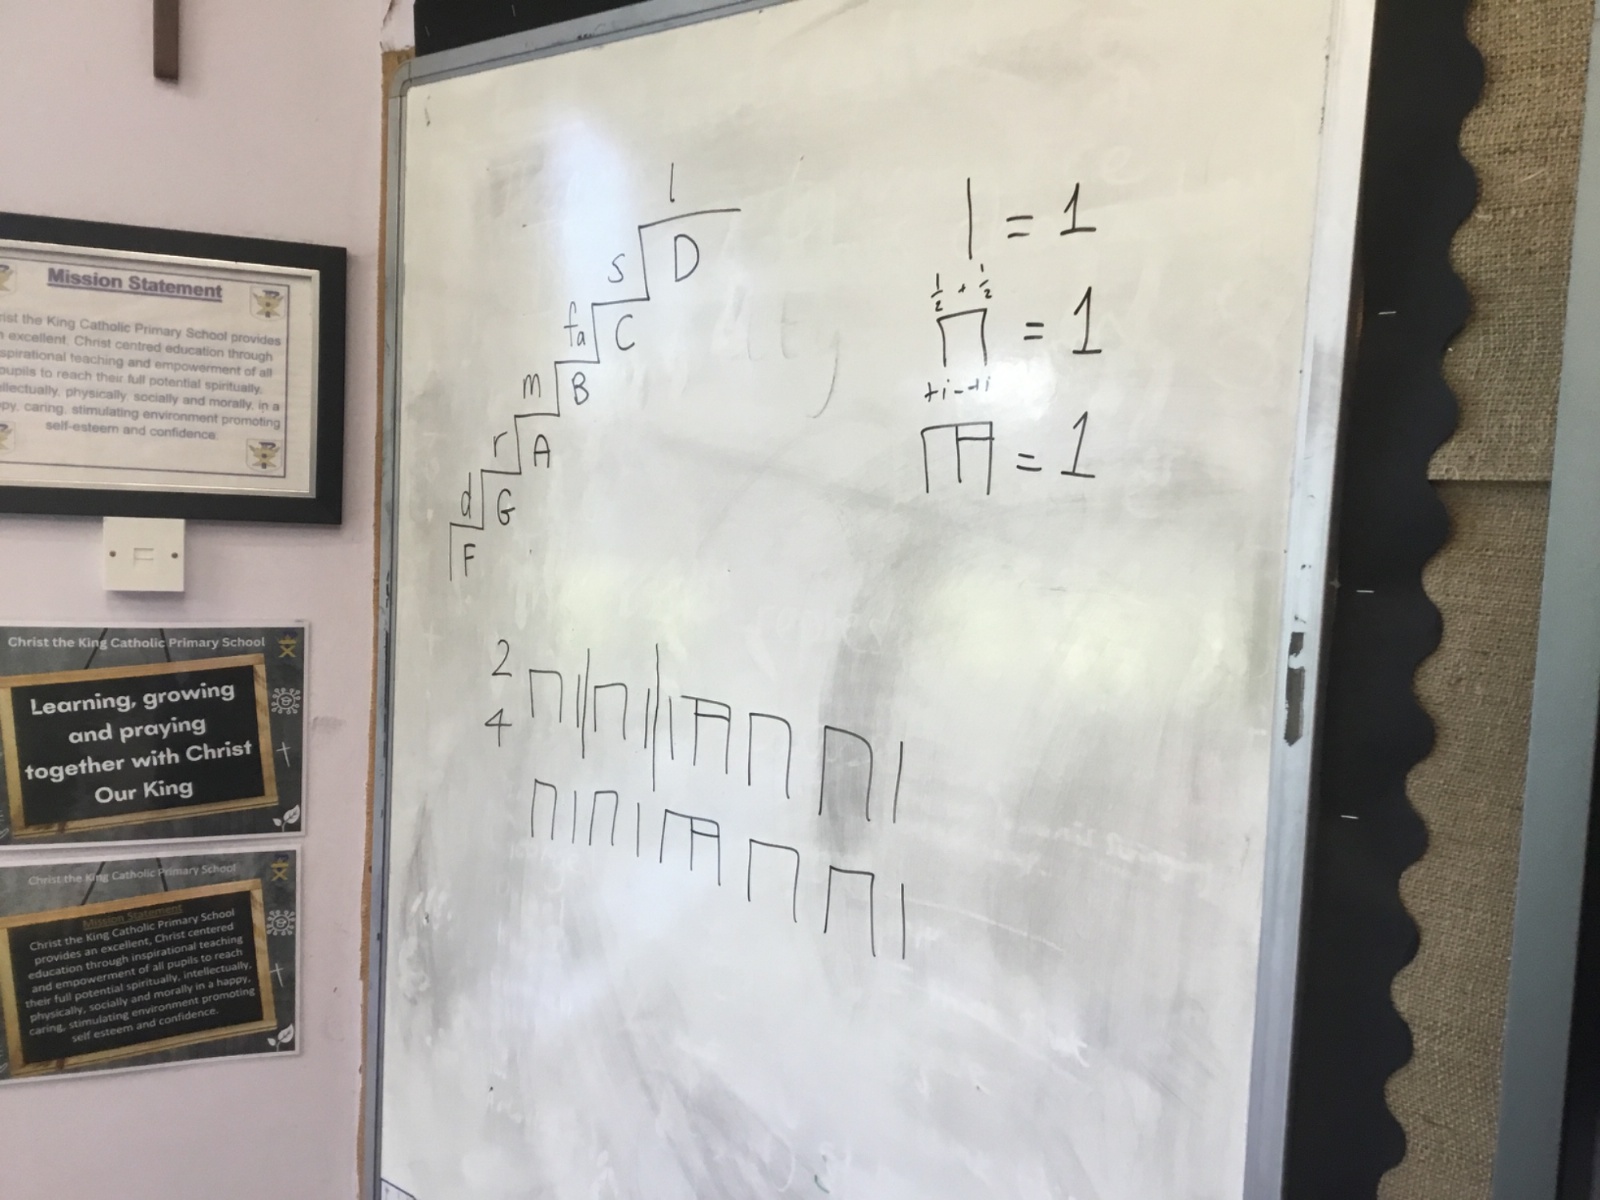 Mission Statement
rist the King Catholic Primary School provides
n excellent, Christ centred education through
spirational teaching and empowerment of all
pupils to reach their full potential spiritually,
ellectually, physically, socially and morally, in a
ppy, caring, stimulating environment promoting
self-esteem and confidence.
Christ the King Catholic Primary School
Learning, growing
and praying
together with Christ
Our King
Christ the King Catholic Primary School
Mission Statement
Christ the King Catholic Primary School
provides an excellent, Christ centered
education through inspirational teaching
and empowerment of all pupils to reach
their full potential spiritually, intellectually,
physically, socially and morally in a happy,
caring, stimulating environment promoting
self esteem and confidence.
l
s D
fa C
m B
r A
d G
F
| = 1
½ + ½
= 1
ti-ti
= 1
2
4